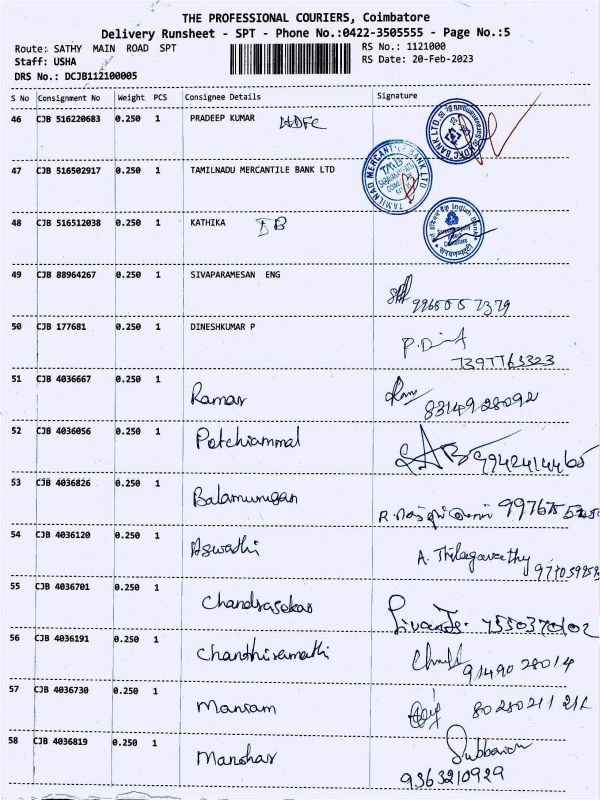 THE PROFESSIONAL COURIERS, Coimbatore
Delivery Runsheet - SPT - Phone No.:0422-3505555 - Page No.:5
Route: SATHY MAIN ROAD SPT RS No.: 1121000
Staff: USHA RS Date: 20-Feb-2023
DRS No.: DCJB112100005
S No Consignment No Weight PCS Consignee Details Signature
46 CJB 516220683 0.250 1 PRADEEP KUMAR HDFC
47 CJB 516502917 0.250 1 TAMILNADU MERCANTILE BANK LTD
TAMILNAD MERCANTILE BANK LTD
TMB
48 CJB 516512038 0.250 1 KATHIKA IB
49 CJB 88964267 0.250 1 SIVAPARAMESAN ENG
50 CJB 177681 0.250 1 DINESHKUMAR P
7397763323
51 CJB 4036667 0.250 1 Ramar
8314928092
52 CJB 4036056 0.250 1 Potchiammal
53 CJB 4036826 0.250 1 Balamurugan
54 CJB 4036120 0.250 1 Aswathi A. Thilagavathy
55 CJB 4036701 0.250 1 Chandrasekar 7550370102
56 CJB 4036191 0.250 1 Chanthiramathi
9149028014
57 CJB 4036730 0.250 1 Manram
58 CJB 4036819 0.250 1 Manohar
9363210929